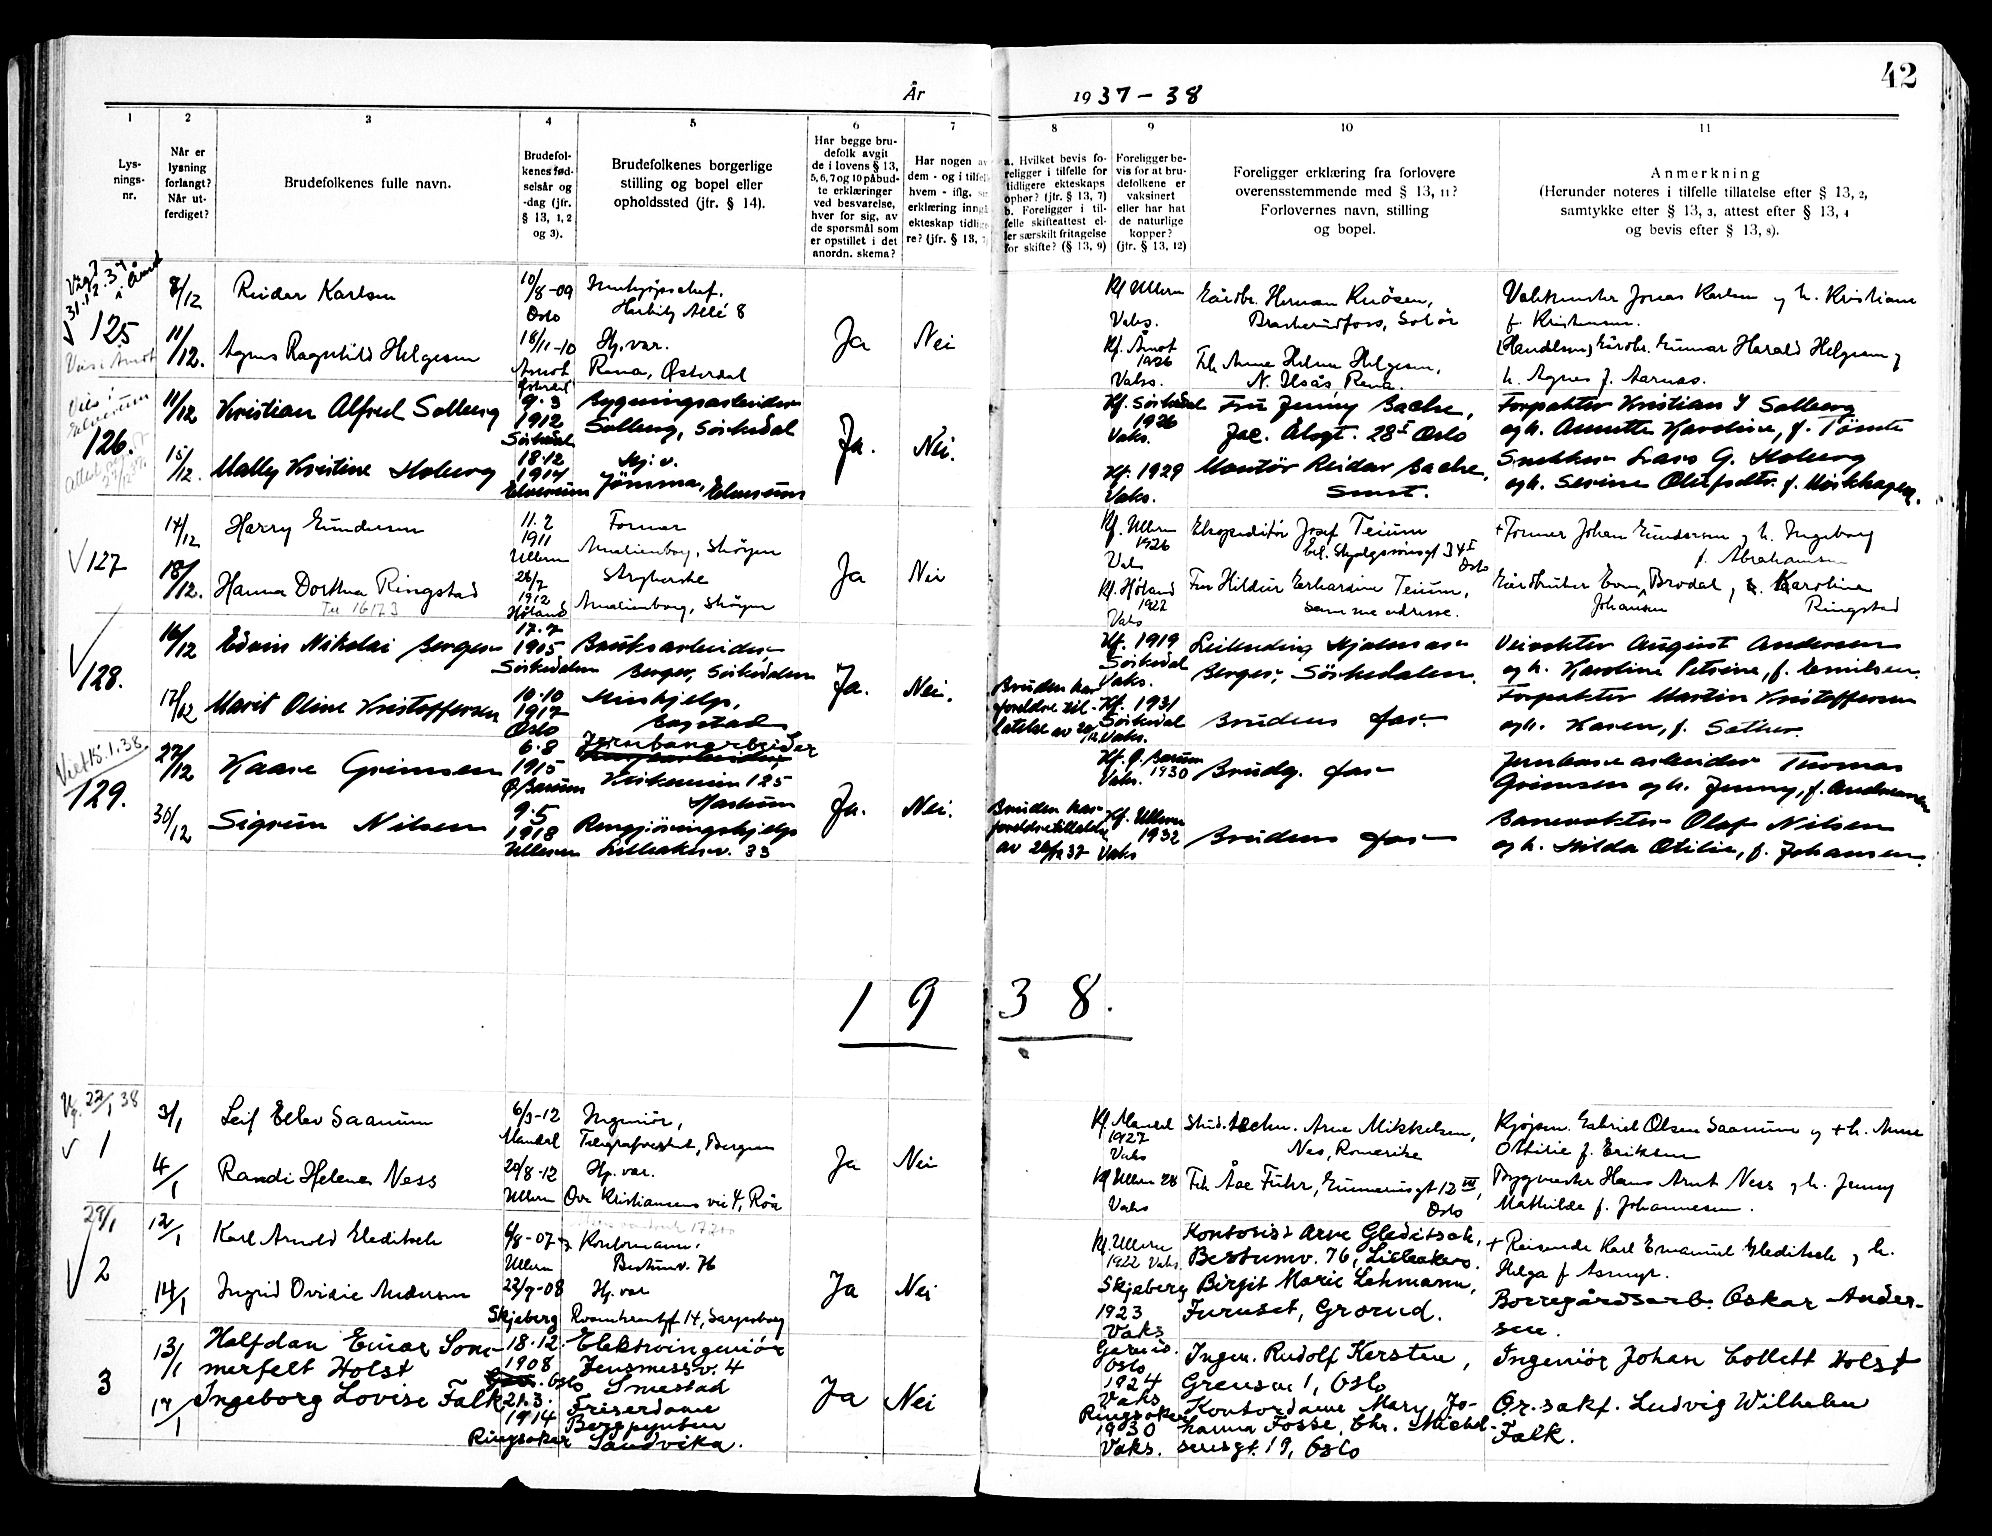 42
År 1937-38
1 2 3 4 5 6 7 8 9 10 11
Lys-
nings-
nr.
Når er
lysning
forlangt?
Når ut-
ferdiget?
Brudefolkenes fulle navn.
Brudefol-
kenes fød-
selsår og
-dag (jfr.
§ 13, 1, 2
og 3).
Brudefolkenes borgerlige
stilling og bopel eller
opholdssted (jfr. § 14).
Har begge bru-
defolk avgit
de i lovens § 13,
5, 6, 7 og 10 påbud-
te erklæringer
ved besvarelse,
hver for sig, av
de spørsmål som
er opstillet i det
anordn. skema?
Har nogen av
dem - og i tilfelle
hvem - iflg.
erklæring inngå
ekteskap tidlige
re? (jfr. § 13,
a. Hvilket bevis fo-
religger i tilfelle for
tidligere ekteskaps
ophør? (jfr. § 13, 7)
b. Foreligger i til-
felle skifteattest el-
ler særskilt fritagelse
for skifte? (§ 13, 9)
Foreligger be-
vis for at bru-
defolkene er
vaksinert
eller har hat
de naturlige
kopper?
(jfr. § 13, 12)
Foreligger erklæring fra forlovere
overensstemmende med § 13, 11?
Forlovernes navn, stilling
og bopel.
Anmerkning
(Herunder noteres i tilfelle tillatelse efter § 13, 2,
samtykke efter § 13, 3, attest efter § 13, 4
og bevis efter § 13, 8).
125
8/12 Reidar Karlsen
10/8-09
Oslo
Innkjøpschef.
Harbitz Allé 8
Ja Nei
Kf Ullern
Vaks.
Gårdbr. Herman
Solør
Jonas Karlsen og h. Kristiane
f. Kristensen.
11/12. Agnes Ragnhild Helgesen
18/11-10
Åmot
Østerdal
Hj. var.
Rena, Østerdal
Kf. Åmot
1926
Vaks.
Frk. Anne Helene Helgesen,
Rena.
Gårdbr. Gunnar Harald Helgesen og
h. Agnes f. Aarnæs.
126.
11/12 Kristian Alfred Solberg
9.3
1912
Sørkedal
Bygningsarbeider
Solberg, Sørkedal
Ja. Nei.
Kf. Sørkedal
1926
Vaks.
Fru Jenny Bache,
Jac. Alsgt. 28 I Oslo
Forpakter Kristian Solberg
og h. Annette Karoline, f. Tømte
15/12. Mally Kristine Hoberg
18.12
1914
Elverum
Hj. v.
Jømna, Elverum
Kf. 1929
Vaks.
Montør Reidar Bache,
Smst.
Snekker Lars G. Hoberg
og h. Sevine Olufsdtr. f. Mørkhagen.
127
14/12 Harry Gundersen
11.2
1911
Ullern
Former
Amalienborg, Skøyen
Ja Nei
Kf. Ullern
1926
Vaks
Ekspeditør Josef Teium
Oslo
+ Former Johan Gundersen og h. Ingeborg
f. Abrahamsen
18/12. Hanna Dorthea Ringstad
26/7
1912
Høland
Strykerske
Amalienborg, Skøyen
Kf. Høland
1922
Vaks
Fru Hildur Teium,
samme adresse.
Gårdbruker Even Brodal, Karoline
Johansen Ringstad
128.
16/12 Edvin Nikolai Berger
17.7
1905
Sørkedalen
Bruksarbeider
Berger, Sørkedalen
Ja. Nei.
Kf. 1919
Sørkedal
Vaks.
Berger, Sørkedalen.
Veivokter August Andersen
og h. Karoline Petrine, f. Emilsen.
17/12 Marit Oline Kristoffersen
10.10
1917
Oslo
Hushjelp,
Bogstad
Bruden har
foreldretil-
latelse av
Kf. 1931
Sørkedal
Vaks.
Brudens far
Forpakter Martin Kristoffersen
og h. Karen, f. Sather.
Viet 15.1.38.
129.
27/12 Kaare Grimsen
6.8
1915
Ø. Bærum
Jernbanearbeider
125
Ja. Nei.
Kf. Ø. Bærum
Vaks. 1930
Brudg. far
Jernbanearbeider Thomas
Grimsen og h. Jenny, f. Andresen
30/12 Sigrun Nilsen
9.5
1918
Ullern
Rengjøringshjelp
Lilleakerv. 33
Bruden har
foreldretillatelse
av
Kf. Ullern
1932
Vaks
Brudens far
Banevokter Olaf Nilsen
og h. Hilda Otilie, f. Johansen.
1938.
Vg. 22/1 38
1
3/1 Leif Ellev Saanum
6/3-12
Mandal
Ingeniør,
Bergen
Ja Nei
Kf. Mandal
1927
Vaks
Stud. techn. Arne Mikkelsen,
Nes, Romerike
Kjøpm. Gabriel Olsen Saanum og + h. Anne
Othilie f. Eriksen
4/1 Randi Helene Ness
20/8-12
Ullern
Hj. var.
Ove Kristiansens vei 4, Røa
Kf Ullern 28
Vaks
Frk. Åse Fuhr, Gunerusgt 12 VII,
Oslo
Byggmester Hans Arnt Ness og h. Jenny
Mathilde f. Johannesen.
29/1
2
12/1 Karl Arnold Gleditsch
6/8-07
Ullern
Kontormann,
Bestumv. 76
Ja Nei
Kf. Ullern
1922 Vaks.
Kontorist Arve Gleditsch,
Bestumv. 76, Lilleaker.
+ Reisende Karl Emanuel Gleditsch og h.
Helga f.
14/1 Ingrid Ovidie Andersen
22/9-08
Skjeberg
Hj. var
14, Sarpsborg
Skjeberg
1923
Vaks
Birgit Marie Lehmann,
Furuset, Grorud.
Borregårdsarb. Oskar Ander-
sen.
3
13/1 Halfdan Einar Som-
merfelt Holst
18.12
1908
Oslo
Elektroingeniør
Jensmessv. 4
Smestad
Ja Nei
Oslo
1924
Vaks
Ingen. Rudolf Kersten,
Grensen 1, Oslo
Ingeniør Johan Collett Holst
17/1 Ingeborg Lovise Falk
21.3.
1914
Ringsaker
Friserdame
Bergpynten
Sandvika.
Ringsaker
1930
Vaks.
Kontordame Mary Jo-
hanna Fosse, Chr. Michel-
sensgt. 19, Oslo
O.r.sakf. Ludvig Wilhelm
Falk.